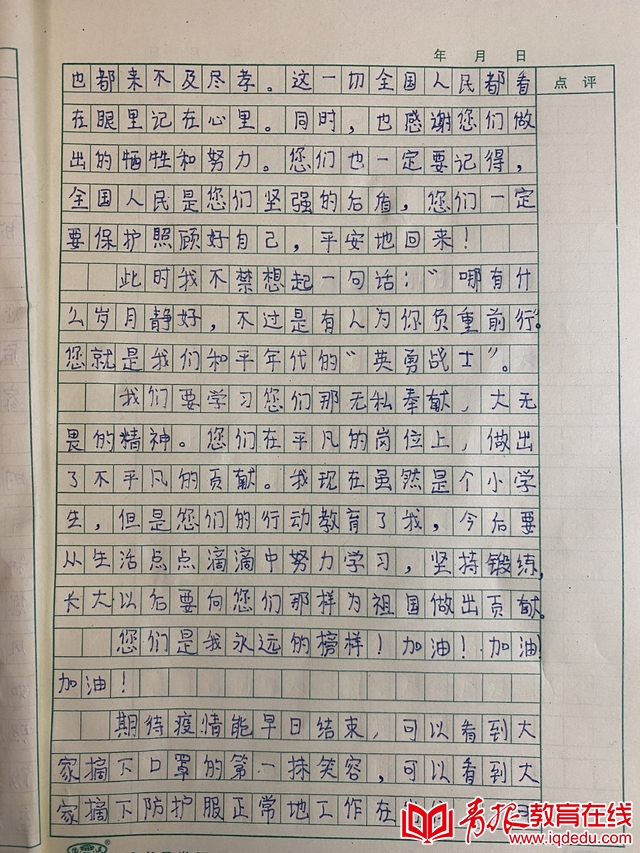 年 月 日
点 评
也都来不及尽孝。这一切全国人民都看
在眼里记在心里。同时，也感谢您们做
出的牺牲和努力。您们也一定要记得，
全国人民是您们坚强的后盾，您们一定
要保护照顾好自己，平安地回来！
此时我不禁想起一句话：“哪有什
么岁月静好，不过是有人为你负重前行。
您就是我们和平年代的“英勇战士”。
我们要学习您们那无私奉献，大无
畏的精神。您们在平凡的岗位上，做出
了不平凡的贡献。我现在虽然是个小学
生，但是您们的行动教育了我，今后要
从生活点点滴滴中努力学习，坚持锻练，
长大以后要向您们那样为祖国做出贡献。
您们是我永远的榜样！加油！加油
加油！
期待疫情能早日结束，可以看到大
家摘下口罩的第一抹笑容，可以看到大
家摘下防护服正常地工作在
青报教育在线
www.iqdedu.com